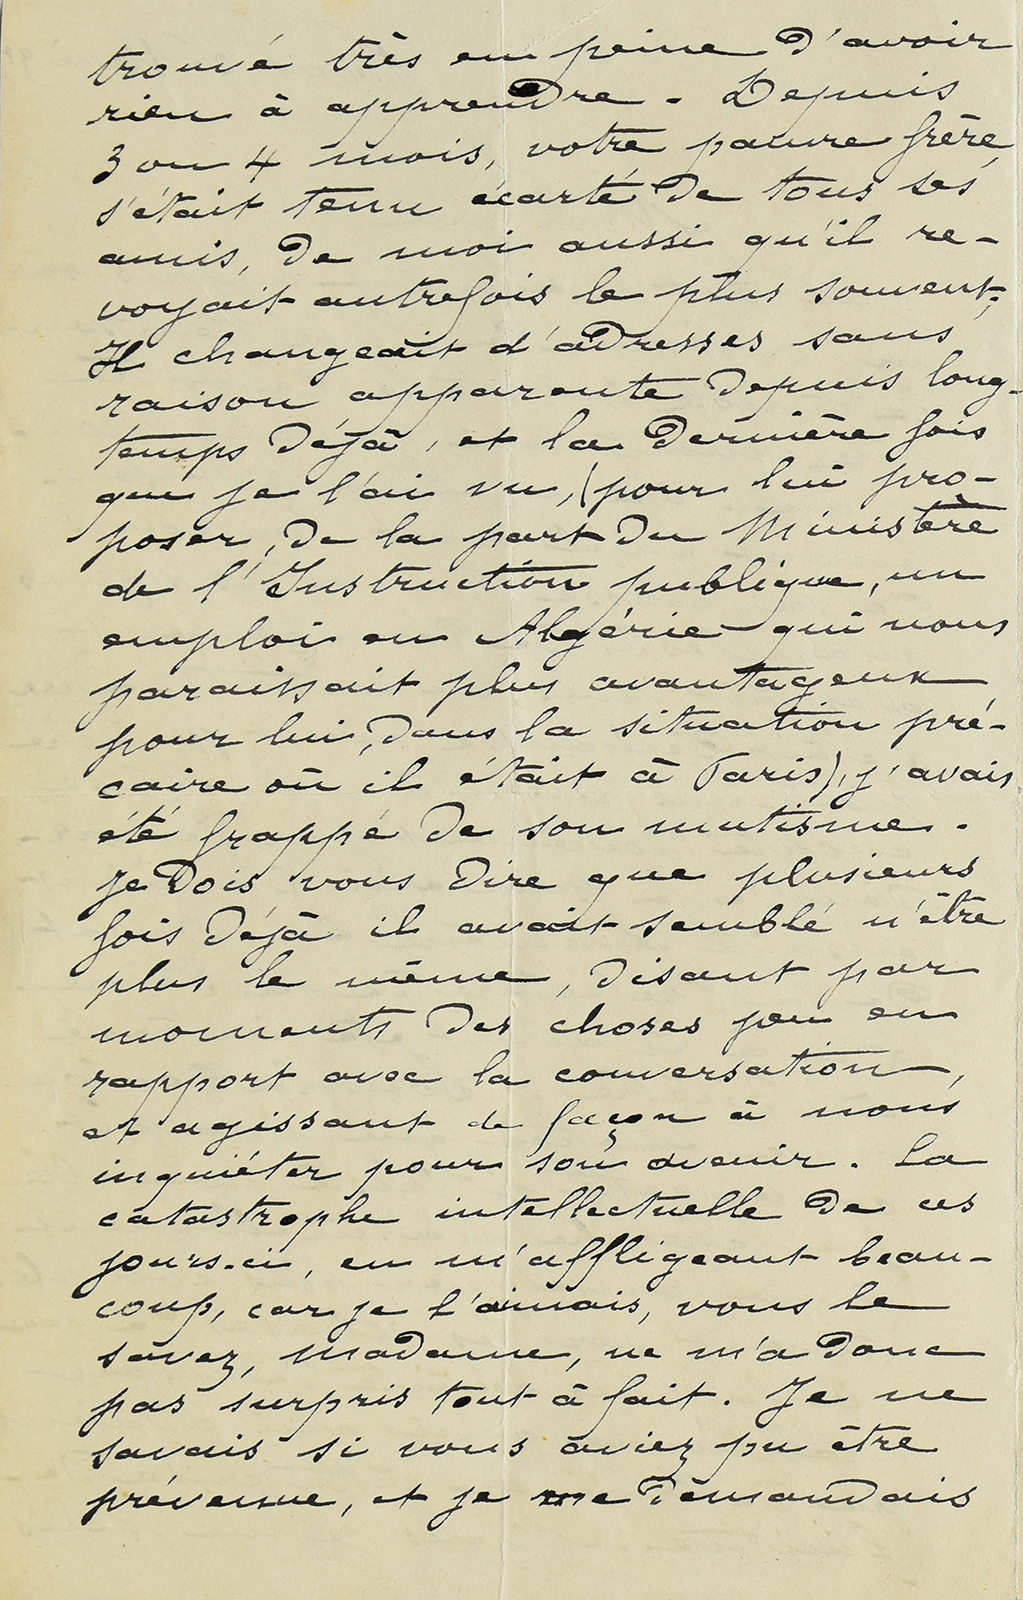 trouvé très en peine d'avoir
rien à apprendre. Depuis
3 ou 4 mois, votre pauvre frère
s'était tenu écarté de tous ses
amis, de moi aussi qu'il re-
voyait autrefois le plus souvent;
Il changeait d'adresses sans
raison apparente depuis long-
temps déjà, et la dernière fois
que je l'ai vu, (pour lui pro-
poser, de la part du Ministère
de l'Instruction publique, un
emploi en Algérie qui nous
paraissait plus avantageux
pour lui, dans la situation pré-
caire où il était à Paris), j'avais
été frappé de son mutisme.
Je dois vous dire que plusieurs
fois déjà il avait semblé n'être
plus le même, disant par
moments des choses peu en
rapport avec la conversation,
et agissant de façon à nous
inquiéter pour son avenir. La
catastrophe intellectuelle de ces
jours-ci, en m'affligeant beau-
coup, car je l'aimais, vous le
savez, Madame, ne m'a donc
pas surpris tout à fait. Je ne
savais si vous aviez pu être
prévenue, et je me demandais